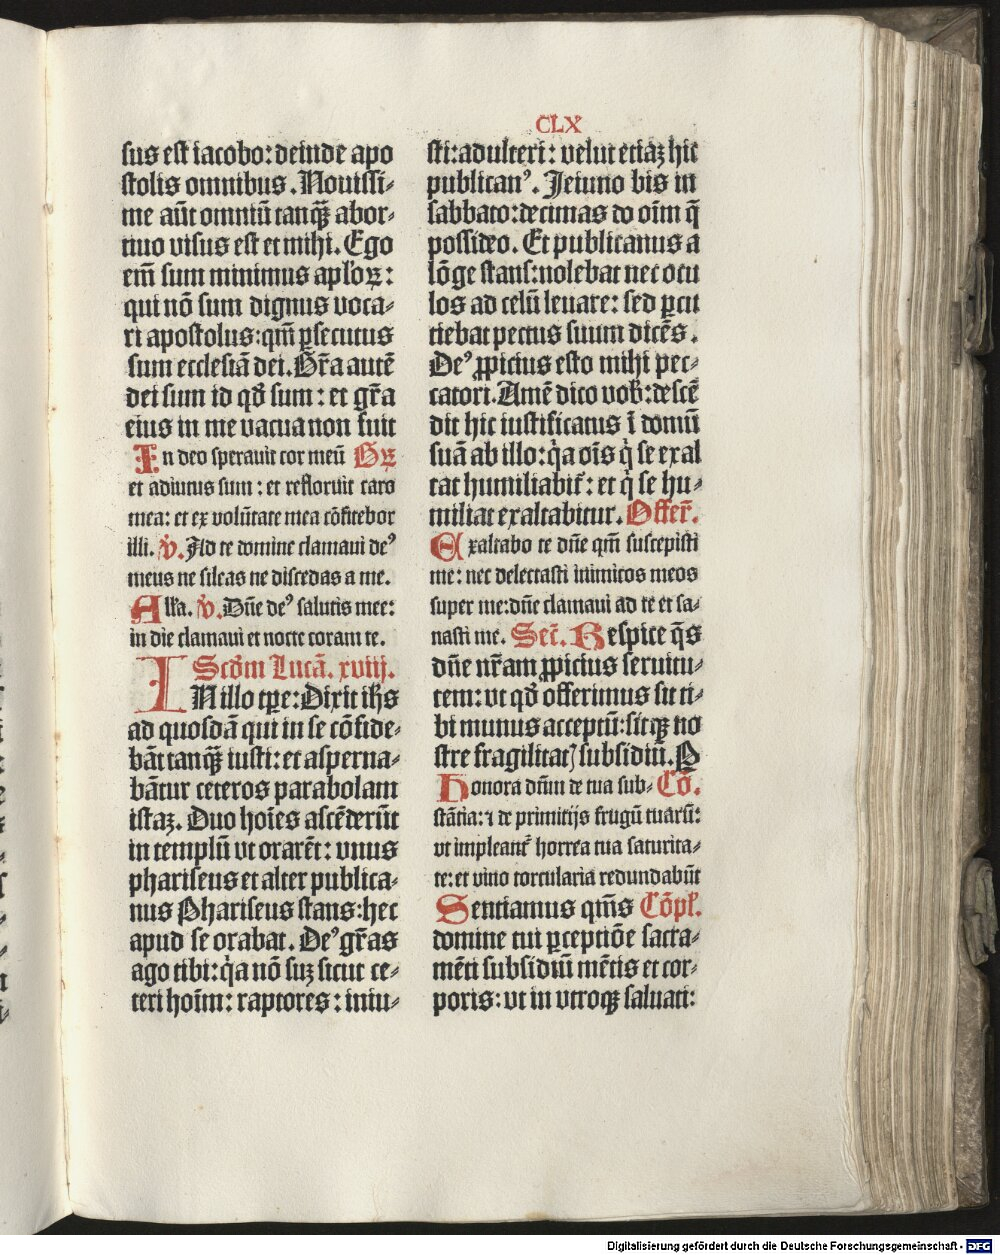 CLX
sus est iacobo: deinde apo
stolis omnibus. Nouissi-
me aūt omniū tanq̄ꝫ abor-
tiuo visus est et mihi. Ego
em̄ sum minimus apl'oꝝ:
qui nō sum dignus voca-
ri apostolus: qm̄ ꝑsecutus
sum ecclesiā dei. Gr̄a autē
dei sum id qð sum: et gr̄a
eius in me vacua non fuit
In deo sperauit cor meū Gꝝ
et adiutus sum: et refloruit caro
mea: et ex volūtate mea cōfitebor
illi. v̇. Ad te domine clamaui deꝰ
meus ne sileas ne discedas a me.
All'a. v̇. Dn̄e deꝰ salutis mee:
in die clamaui et nocte coram te.
Scd̄m Lucā. xviij.
IN illo tp̄e: Dixit ih̄s
ad quosdā qui in se cōfide-
bāt tanq̄ꝫ iusti: et asperna-
bātur ceteros parabolam
istaꝫ. Duo hoīes ascēderūt
in templū vt orarēt: vnus
phariseus et alter publica-
nus Phariseus stans: hec
apud se orabat. Deꝰ gr̄as
ago tibi: q̇a nō suꝫ sicut ce-
teri hoīm: raptores: iniu-
sti: adulteri: velut etiāꝫ hic
publicanꝰ. Jeiuno bis in
sabbato: decimas do oīm q̄
possideo. Et publicanus a
lōge stans: nolebat nec ocu
los ad celū leuare: sed ꝑcu
tiebat pectus suum dicēs.
Deꝰ ꝓpicius esto mihi pec-
catori. Amē dico vob': descē
dit hic iustificatus ī domū
suā ab illo: q̇a oīs q̇ se exal
tat humiliabit᷑: et q̇ se hu-
miliat exaltabitur. Offer̄.
Exaltabo te dn̄e qm̄ suscepisti
me: nec delectasti inimicos meos
super me: dn̄e clamaui ad te et sa-
nasti me. Sec̄. Respice q̄s
dn̄e nr̄am ꝓpicius seruitu-
tem: vt qð offerimus sit ti-
bi munus acceptū: sitqꝫ no
stre fragilitatꝭ subsidiū. P
Honora dn̄m de tua sub- Cō.
stātia: ⁊ de primitijs frugū tuarū:
vt impleant᷑ horrea tua saturita-
te: et vino torcularia redundabūt
Sentiamus qm̄s Cōpl'.
domine tui ꝑceptiōe sacra-
mēti subsidiū mētis et cor-
poris: vt in vtroqꝫ saluati:
Digitalisierung gefördert durch die Deutsche Forschungsgemeinschaft - DFG